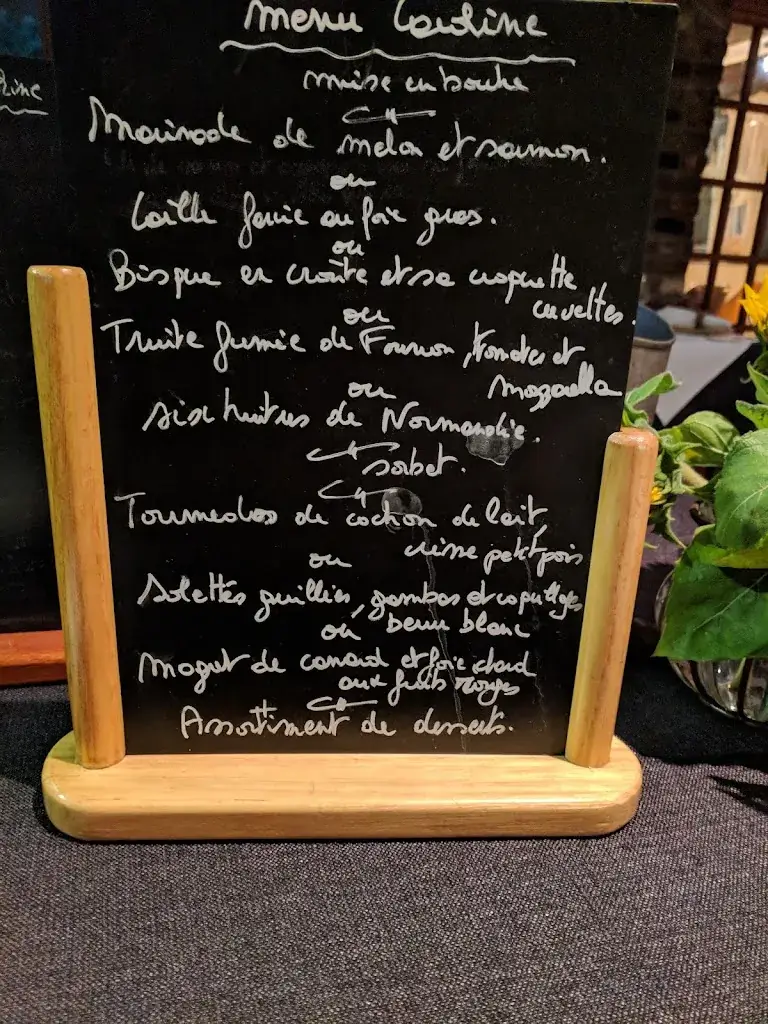 Menu Caroline
mise en bouche
Marinade de melon et saumon.
ou
Caille farcie au foie gras.
ou
Bisque en croûte et sa croquette
crevettes.
ou
Truite fumée de Fournon, tomates et
mozzarella
ou
six huitres de Normandie.
sorbet.
Tournedos de cochon de lait,
crème petit pois
ou
Solettes grillées, gambas et coquillages
ou beurre blanc
Magret de canard et foie chaud
aux fruits rouges
Assortiment de desserts.